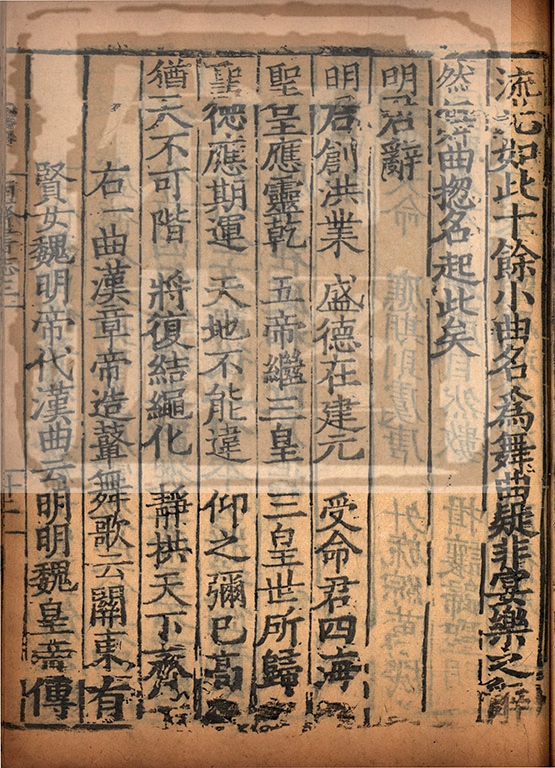 流 如此十餘小曲名爲舞曲疑非宴樂之辭
然 舞曲揔名起此矣
明君辭
明君創洪業 盛德在建元 受命君四海
聖皇應靈乾 五帝繼三皇 三皇世所歸
聖德應期運 天地不能違 仰之彌已高
猶天不可階 將復結繩化 靜拱天下齊
右一曲漢章帝造鼙舞歌云關東有
賢女魏明帝代漢曲云明明魏皇帝傳